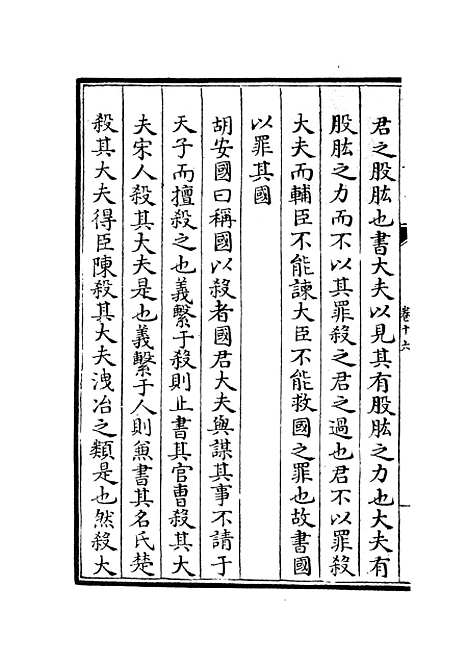 卷十六
君之股肱也書大夫以見其有股肱之力也大夫有
股肱之力而不以其罪殺之君之過也君不以罪殺
大夫而輔臣不能諫大臣不能救國之罪也故書國
以罪其國
胡安國曰稱國以殺者國君大夫與謀其事不請于
天子而擅殺之也義繫于殺則止書其官曹殺其大
夫宋人殺其大夫是也義繫于人則兼書其名氏楚
殺其大夫得臣陳殺其大夫洩冶之類是也然殺大